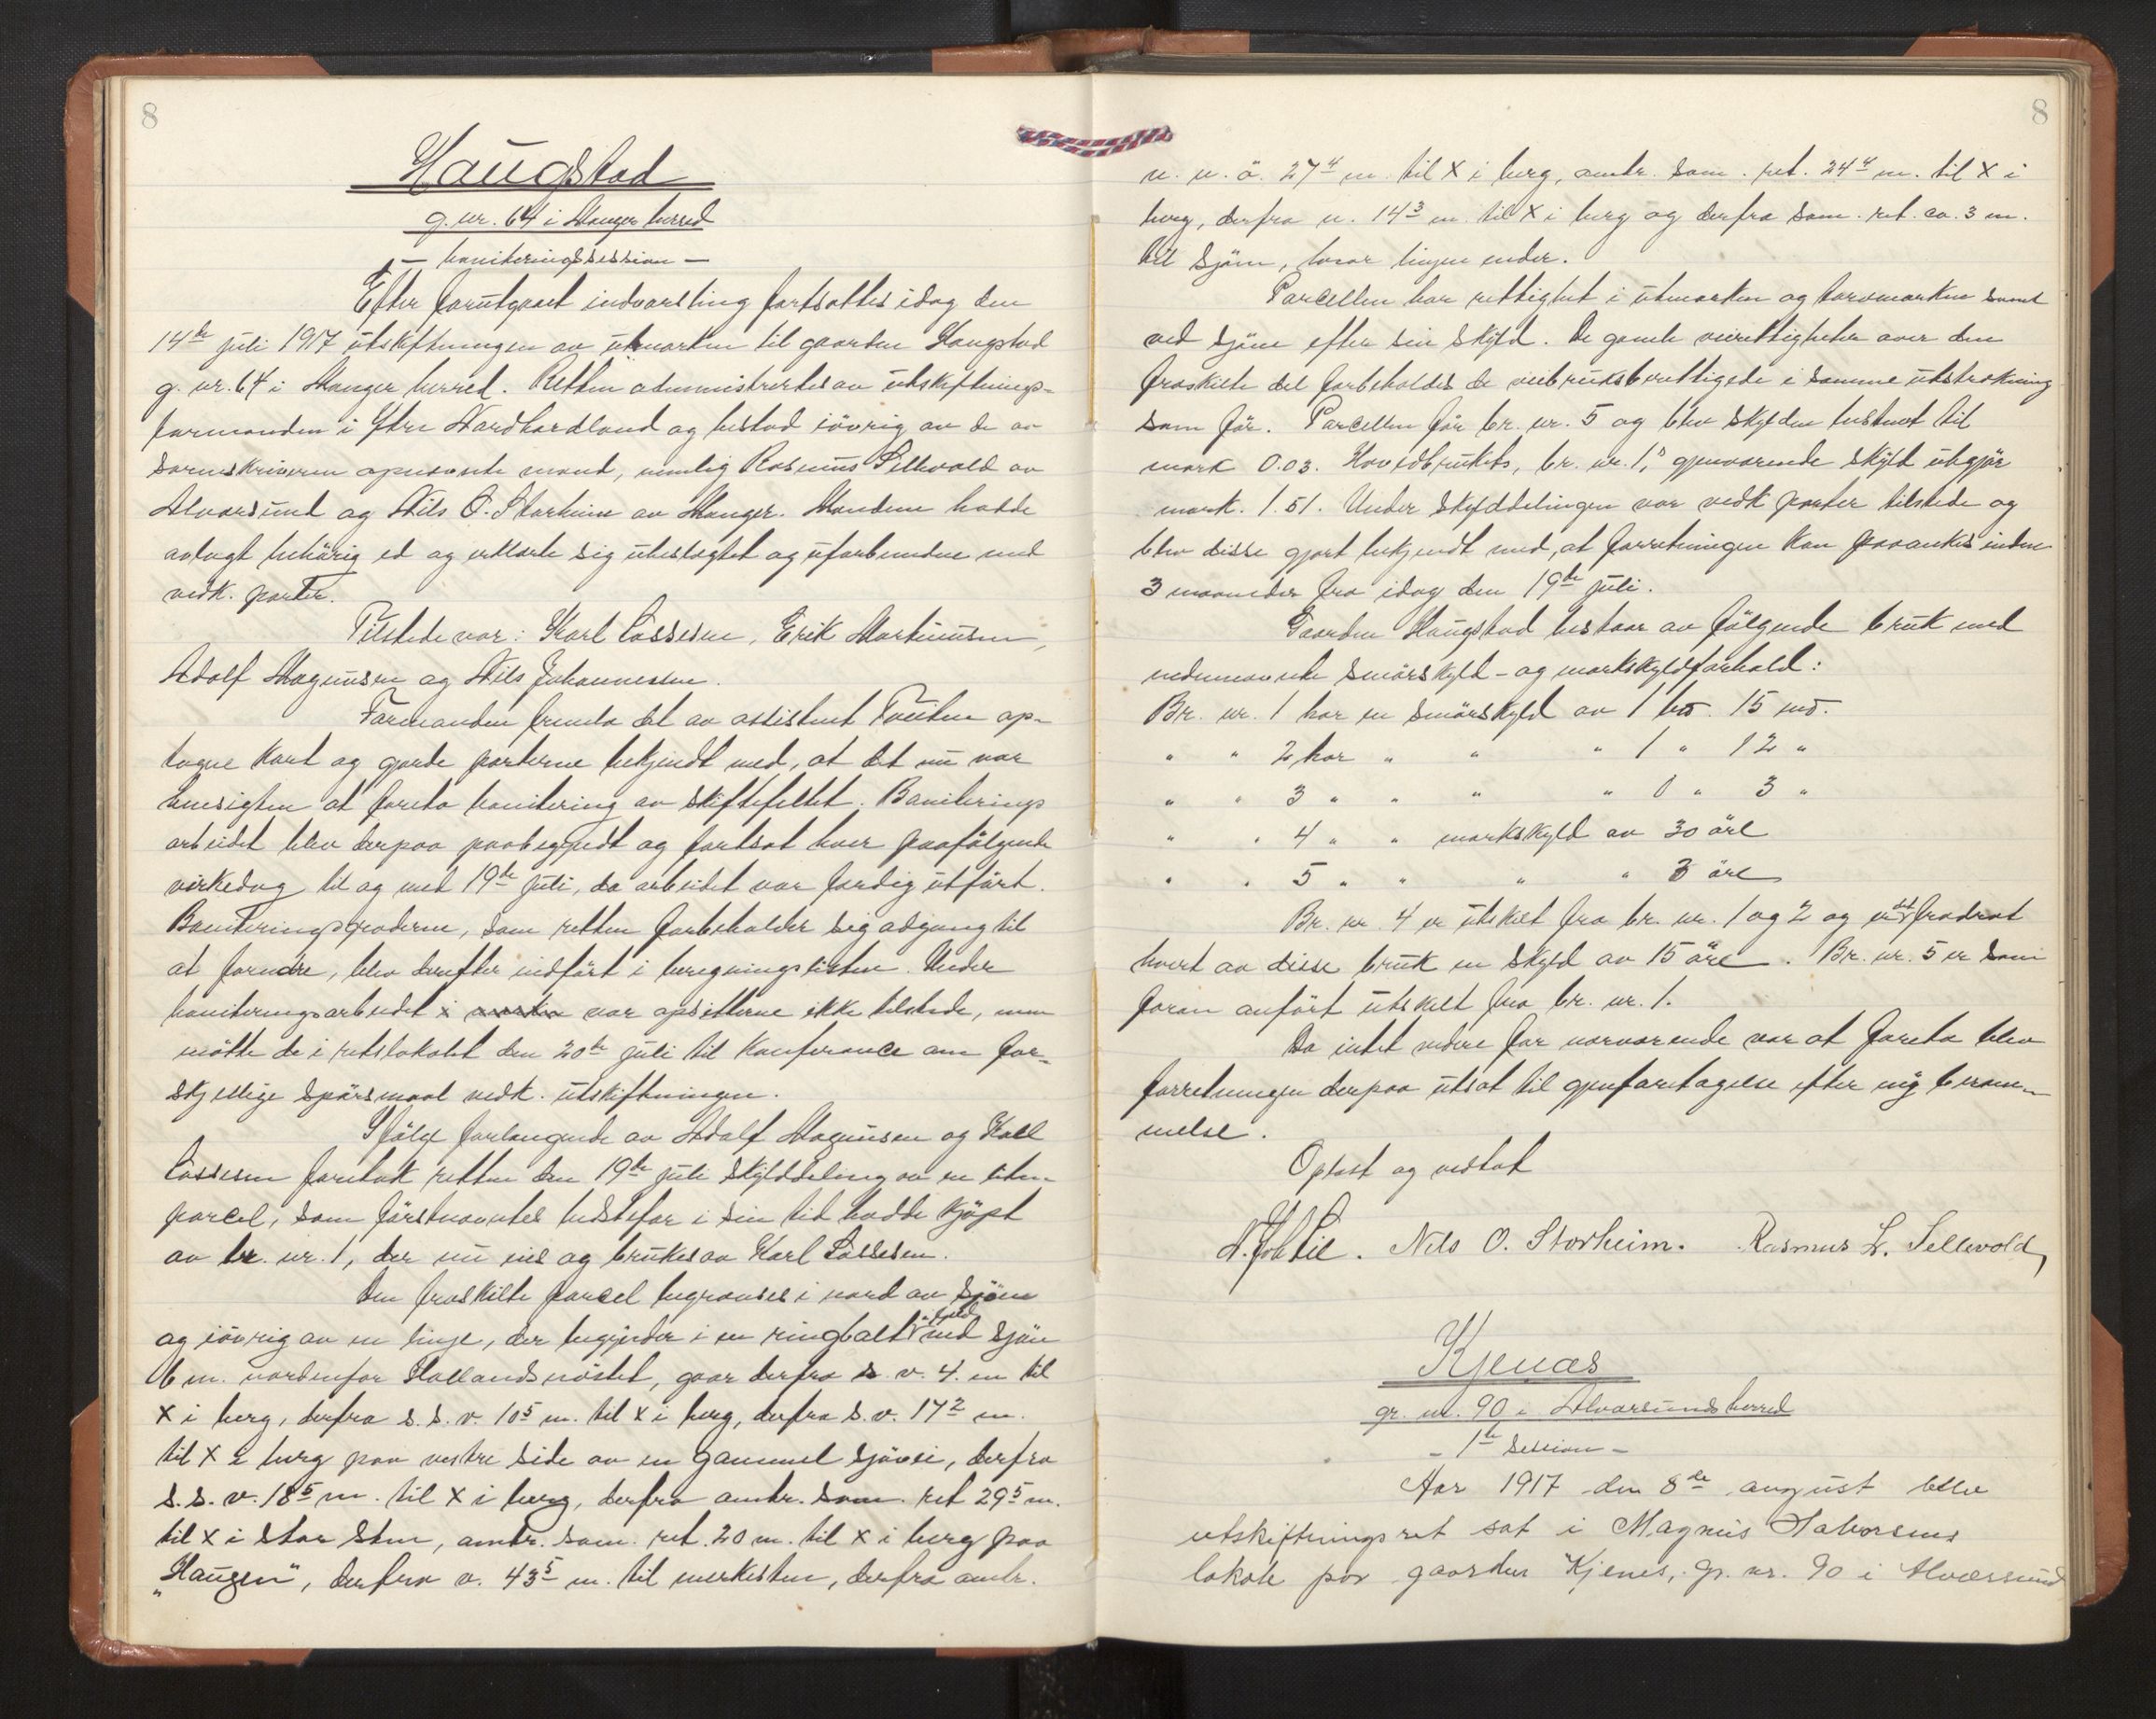 8
Haugstad
g. nr. 64 i Manger herred
– boniteringssession –
Efter forutgaaet indvarsling fortsattes idag den
14de juli 1917 utskiftningen av utmarken til gaarden Haugstad
g. nr. 64 i Manger herred. Retten administrertes av utskiftnings-
formanden i Ytre Nordhordland og bestod iövrig av de av
sorenskriveren opnævnte mænd, nemlig Rasmus Sellevold av
Alversund og Nils O. Storheim av Manger. Mændene hadde
avlagt behörig ed og erklærte sig ubeslegtet og uforbundne med
vedk. parter.
Tilstede var: Karl Lassesen, Erik Martinusen,
Adolf Magnusen og Nils Johannessen.
Formanden fremla det av assistent Tveiten op-
tagne kart og gjorde parterne bekjendt med, at det nu var
hensigten at foreta bonitering av skiftefeltet. Boniterings
arbeidet blev derpaa paabegyndt og fortsat hver paafölgende
virkedag til og med 19de juli, da arbeidet var færdig utfört.
Boniteringsgraderne, som retten forbeholder sig adgang til
at forandre, blev derefter indfört i beregningslisten. Under
boniteringsarbeidet i marken var opsitterne ikke tilstede, men
mötte de i retslokalet den 20de juli til konferance om for-
skjellige spörsmaal vedk. utskiftningen.
Ifölge forlangende av Adolf Magnusen og Karl
Lassesen foretok retten den 19de juli skylddeling av en liten
parcel, som förstnævntes bedstefar i sin tid hadde kjöpt
av br. nr. 1, der nu eies og brukes av Karl Lassesen.
Den fraskilte parcel begrænses i nord av sjöen
og iövrig av en linje, der begynder i en ringbolt ved sjöen
6 m. nordenfor Hollandsnöstet, gaar derfra s. v. 4. m til
X i berg, derfra s. s. v. 10⁵ m. til X i berg, derfra s. v. 17² m.
til X i berg paa vestre side av en gammel sjövei, derfra
s. s. v. 18⁵ m. til X i berg, derfra omtr. sam. ret 29⁵ m.
til X i stor sten, omtr. sam. ret. 20 m. til X i berg paa
„Haugen", derfra v. 43⁵ m. til merkesten, derfra omtr.
8
n. n. ö. 27⁴ m. til X i berg, omtr. sam. ret. 24⁴ m. til X i
berg, derfra n. 14³ m. til X i berg og derfra sam. ret. ca. 3 m.
til sjöen, hvor linjen ender.
Parcellen har rettighet i utmarken og torvmarken samt
ved sjöen efter sin skyld. De gamle veirettigheter over den
fraskilte del forbeholdes de veibruksberettigede i samme utstrækning
som för. Parcellen får br. nr. 5 og blev skylden bestemt til
mark 0.03. Hovedbrukets, br. nr. 1,s gjenværende skyld utgjör
mark. 1.51. Under skylddelingen var vedk parter tilstede og
blev disse gjort bekjendt med, at forretningen kan paaankes inden
3 maaneder fra idag den 19de juli.
Gaarden Haugstad bestaar av fölgende bruk med
nedennævnte smörskyld- og markskyldforhold:
Br. nr. 1 har en smörskyld av 1 bd. 15 md.
" " 2 har " " " 1 " 12 "
" " 3 " " " " 0 " 3 "
" " 4 " " markskyld av 30 öre
" " 5 " " " " 3 öre
Br. nr. 4 er utskilt fra br. nr. 1 og 2 og er det fradrat
hvert av disse bruk en skyld av 15 öre. Br. nr. 5 er som
foran anfört utskilt fra br. nr. 1.
Da intet videre for nærværende var at foreta blev
forretningen derpaa utsat til gjenforetagelse efter ny beram-
melse.
Oplæst og vedtat
Nils O. Storheim. Rasmus L. Sellevold,
Kjenæs
gr. nr. 90 i Alversunds herred
– 1ste session –
Aar 1917 den 8de august blev
utskiftningsret sat i Magnus Halvorsens
lokale paa gaarden Kjenes, g. nr. 90 i Alversund